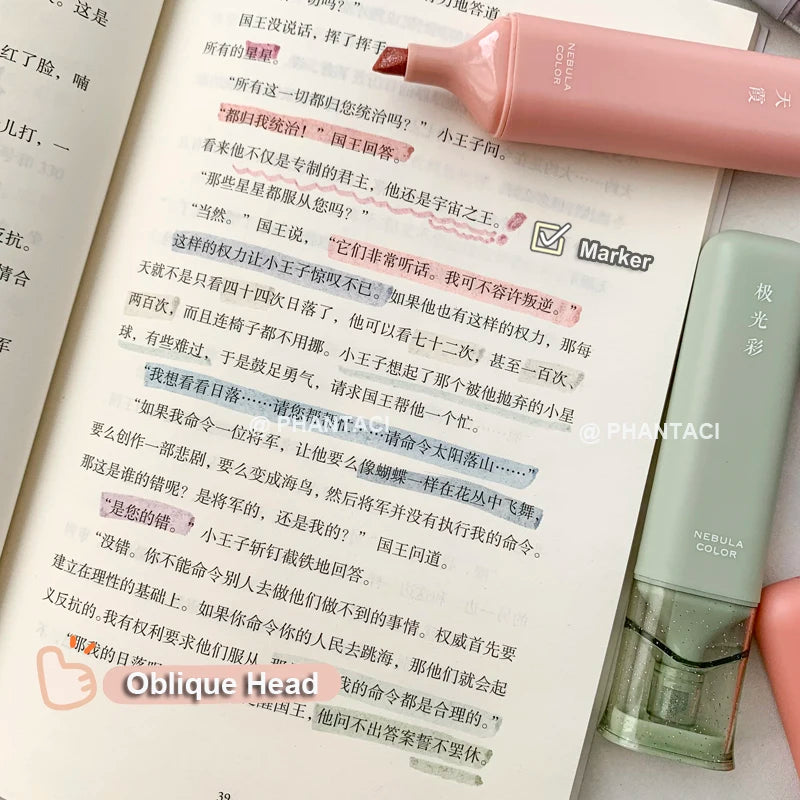 。这是
红了脸，喃
儿打，一
反抗。
情合
军
国王没说话，挥了挥手
所有的星星。
“所有这一切都归您统治吗？”小王子问。
“都归我统治！”国王回答。
看来他不仅是专制的君主，他还是宇宙之王。
“那些星星都服从您吗？”
“当然。”国王说，“它们非常听话。我可不容许叛逆。”
这样的权力让小王子惊叹不已。如果他也有这样的权力，那每
天就不是只看四十四次日落了，他可以看七十二次，甚至一百次、
两百次，而且连椅子都不用挪。小王子想起了那个被他抛弃的小星
球，有些难过，于是鼓足勇气，请求国王帮他一个忙。
“我想看看日落……请您帮帮忙……请命令太阳落山……”
“如果我命令一位将军，让他要么像蝴蝶一样在花丛中飞舞，
要么创作一部悲剧，要么变成海鸟，然后将军并没有执行我的命令。
那这是谁的错呢？是将军的，还是我的？”国王问道。
“是您的错。”小王子斩钉截铁地回答。
“没错。你不能命令别人去做他们做不到的事情。权威首先要
建立在理性的基础上。如果你命令你的人民去跳海，那他们就会起
义反抗的。我有权利要求他们服从，
我的命令都是合理的。”
“那我的日落
国王，他问不出答案誓不罢休。
39
NEBULA
COLOR
天霞
Marker
极光彩
NEBULA
COLOR
@ PHANTACI
@ PHANTACI
Oblique Head